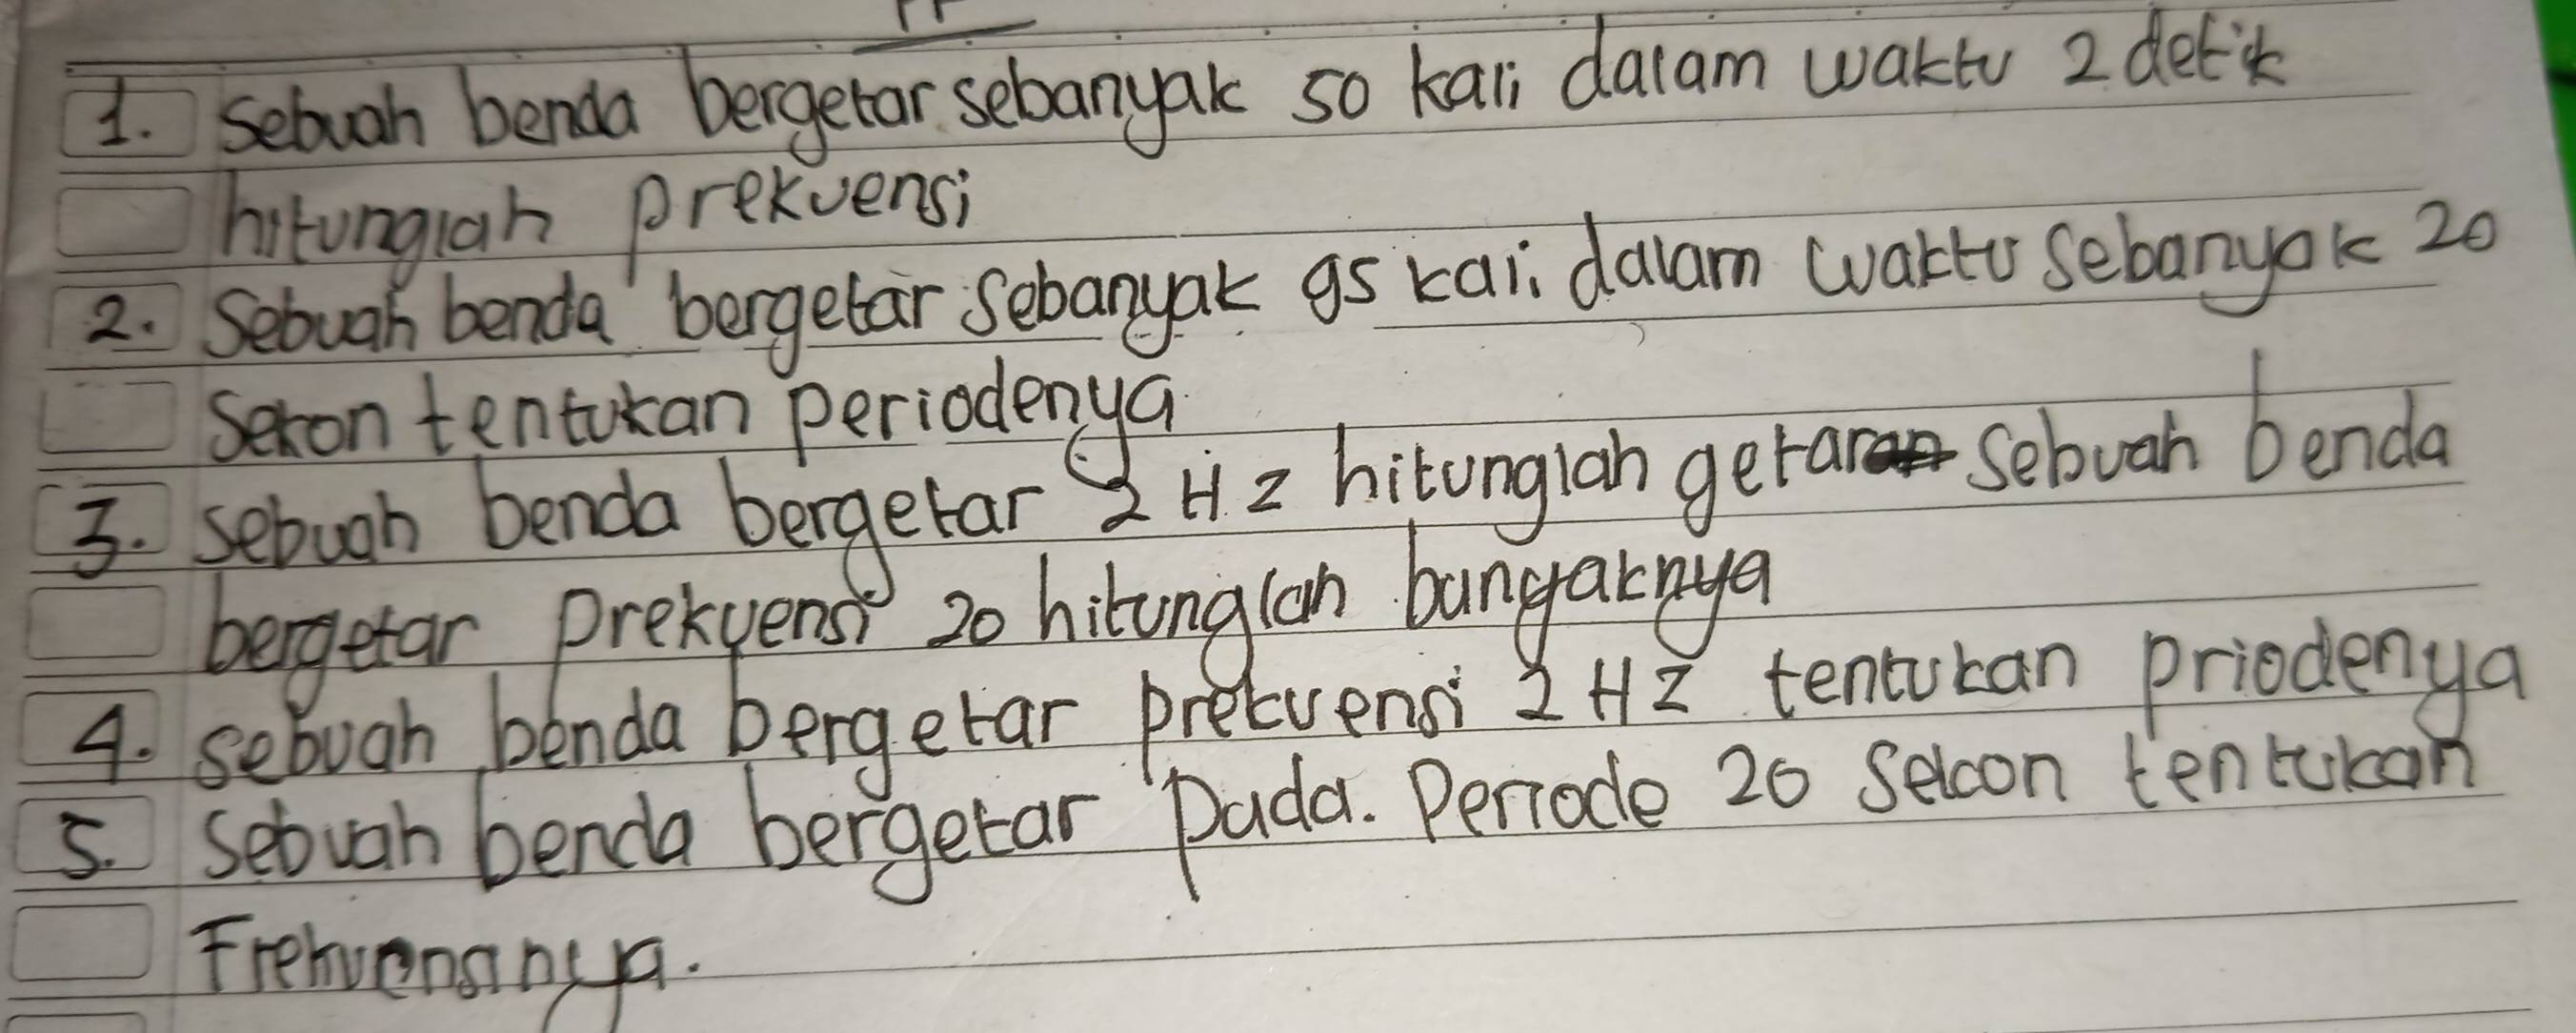 1. Sebuah benda bergetar sebanyak 50 kali dalam waktu 2 detik
hitunglah prekuensi
2. Sebuah benda bergetar sebanyak 95 kali dalam waktu sebanyak 20
Sekon tentukan periodenya
3. sebuah benda bergetar 2 Hz hitunglah getaran sebuah benda
bergetar prekuensi 20 hitunglah banyaknya
4. sebuah benda bergetar prekuensi 2 HZ tentukan priodenya
5. sebuah benda bergetar pada. Periode 20 Sekon tentukan
Frekuensinya.